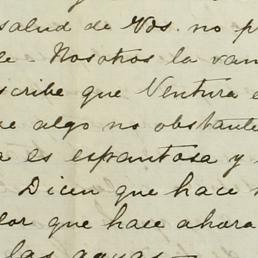 salud de Vds. no p
de. Nosotros la vam
scribe que Ventura e
ue algo no obstante
a es espantosa y
Dicen que hace
lor que hace ahora
las aguas